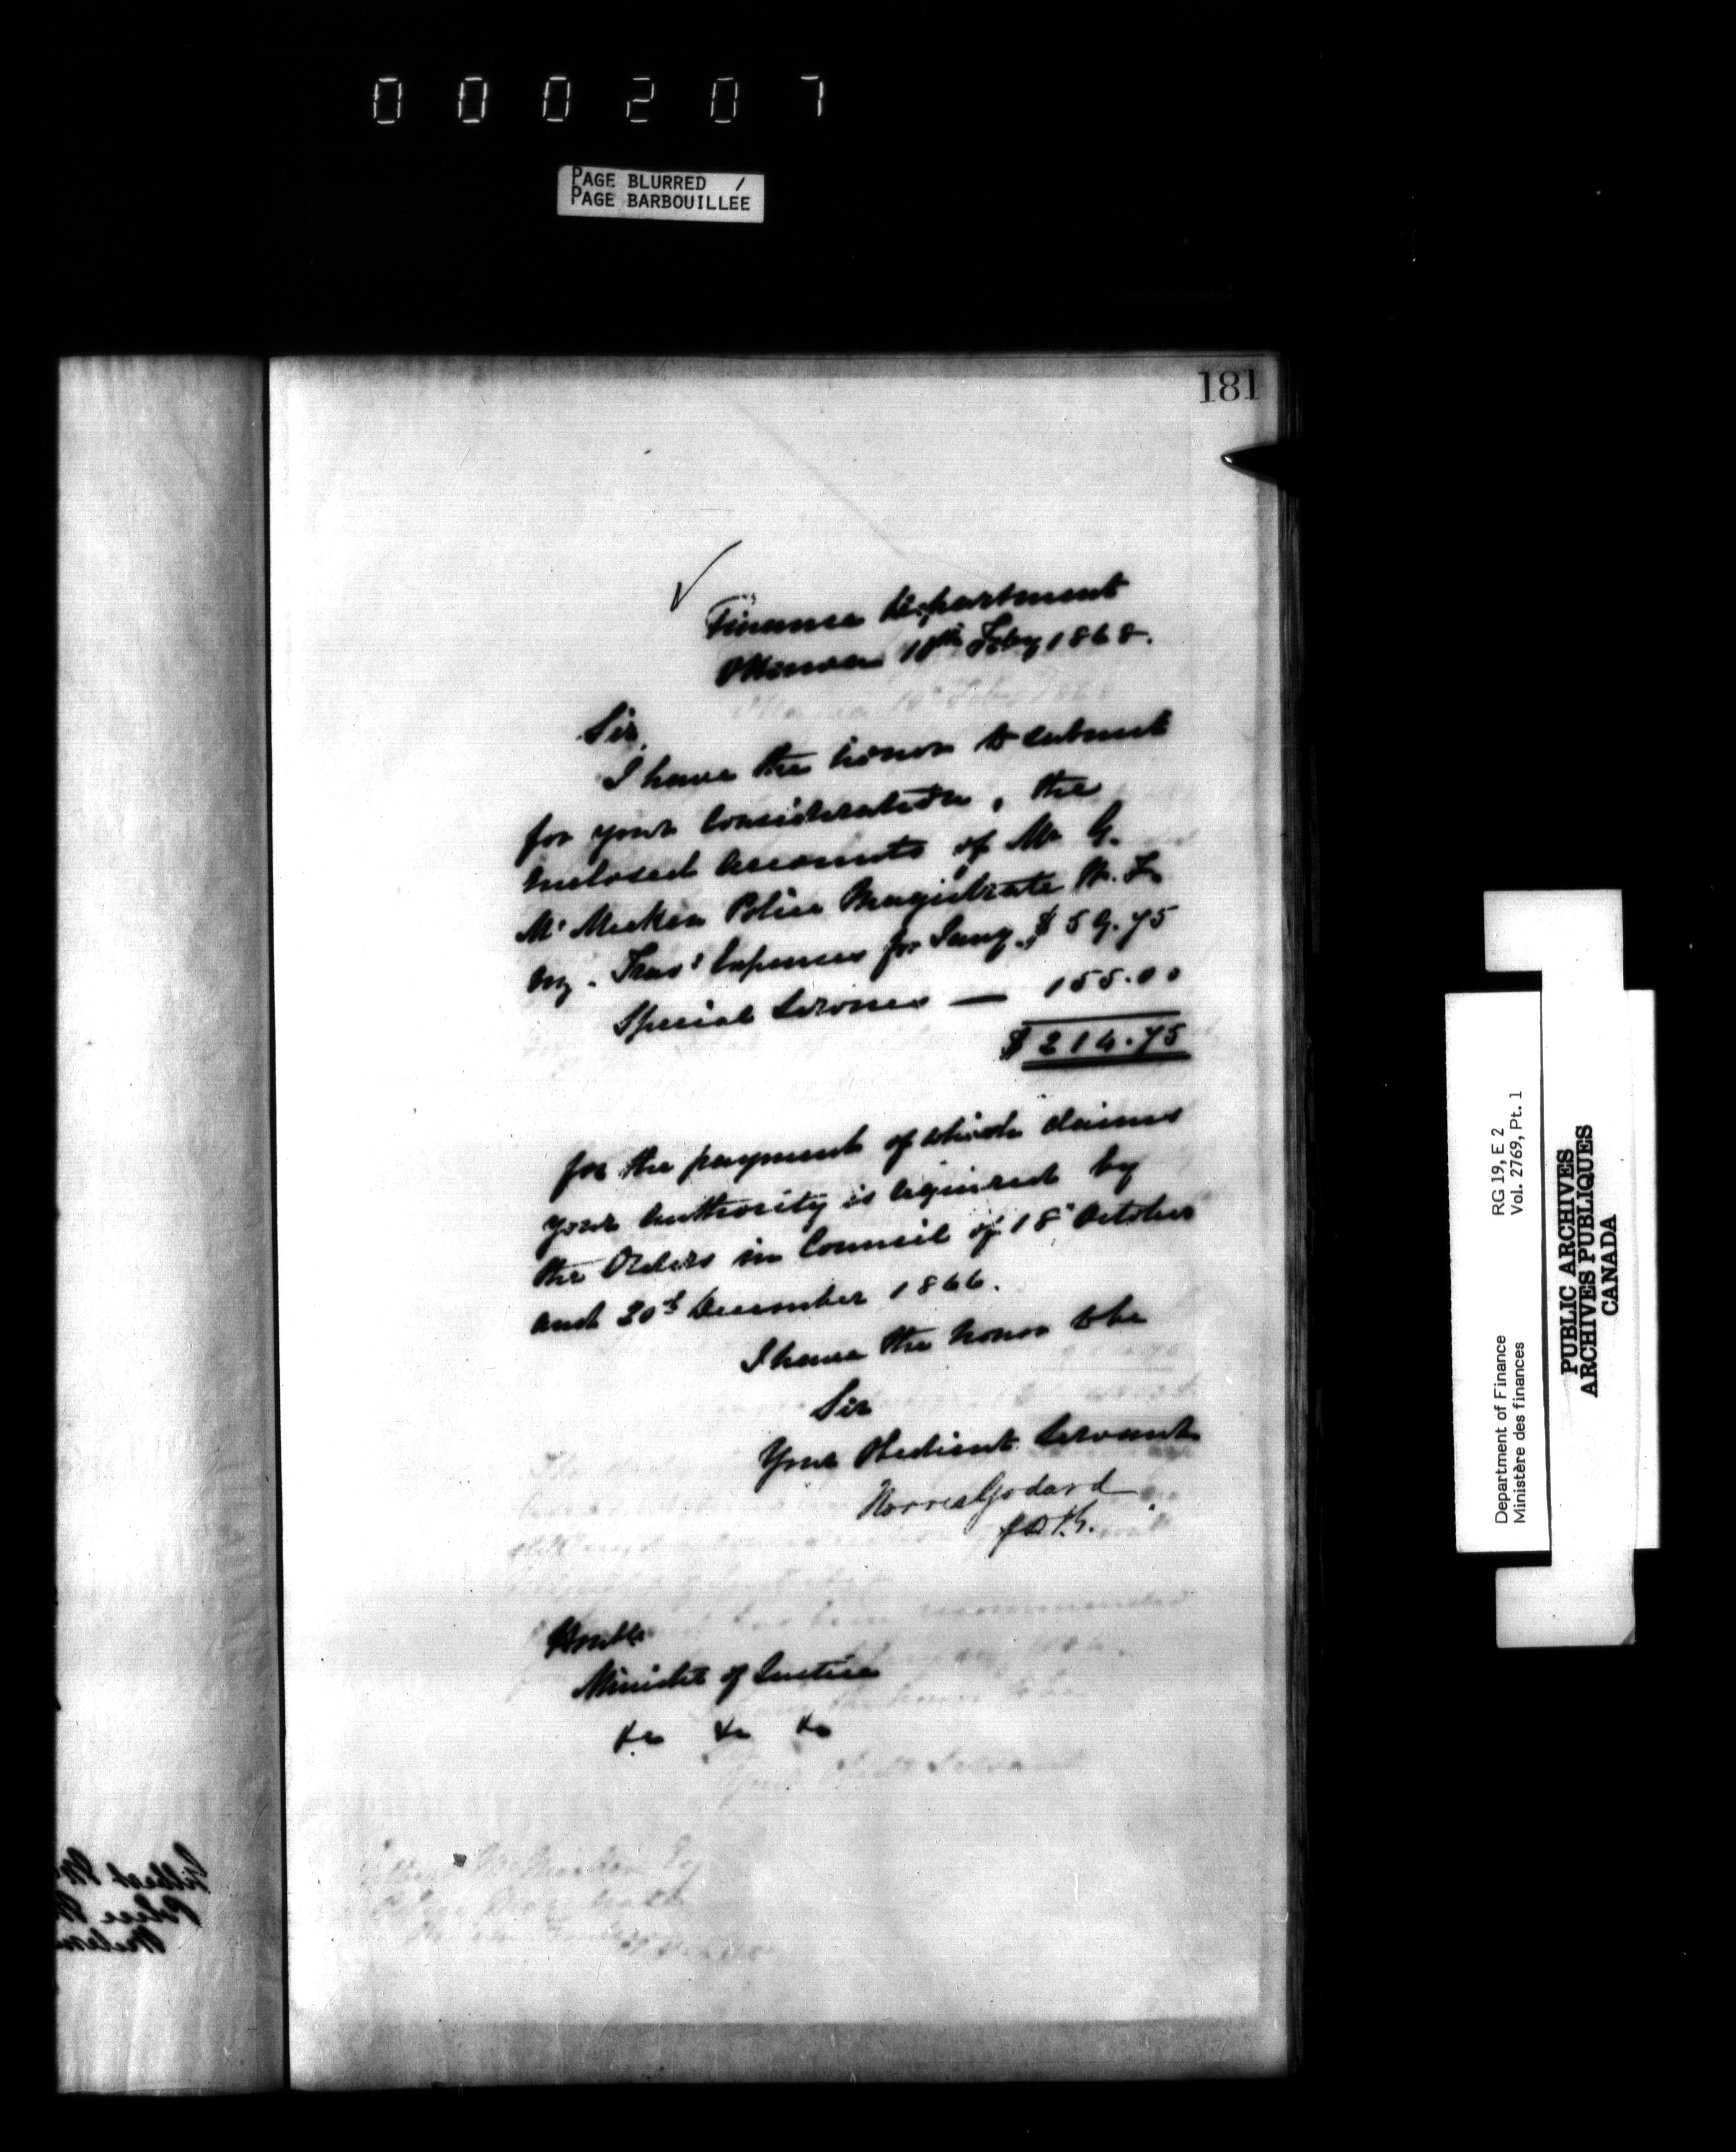 000207
PAGE BLURRED /
PAGE BARBOUILLEE
181
Finance Department
Ottawa 18th Feby 1868.
Sir,
I have the honor to submit
for your Consideration, the
enclosed Accounts of Mr G.
McMicken Police Magistrate W. F.
viz. Trav'g Expenses for Jany. $59.75
Special Services — 155.00
$214.75
for the payment of which claims
your Authority is required by
the Orders in Council of 18th October
and 20th December 1866.
I have the honor to be
Sir
Your Obedient Servant
Norris Godard
Honble
Minister of Justice
&c &c &c
Department of Finance RG 19, E 2
Ministère des finances Vol. 2769, Pt. 1
PUBLIC ARCHIVES
ARCHIVES PUBLIQUES
CANADA